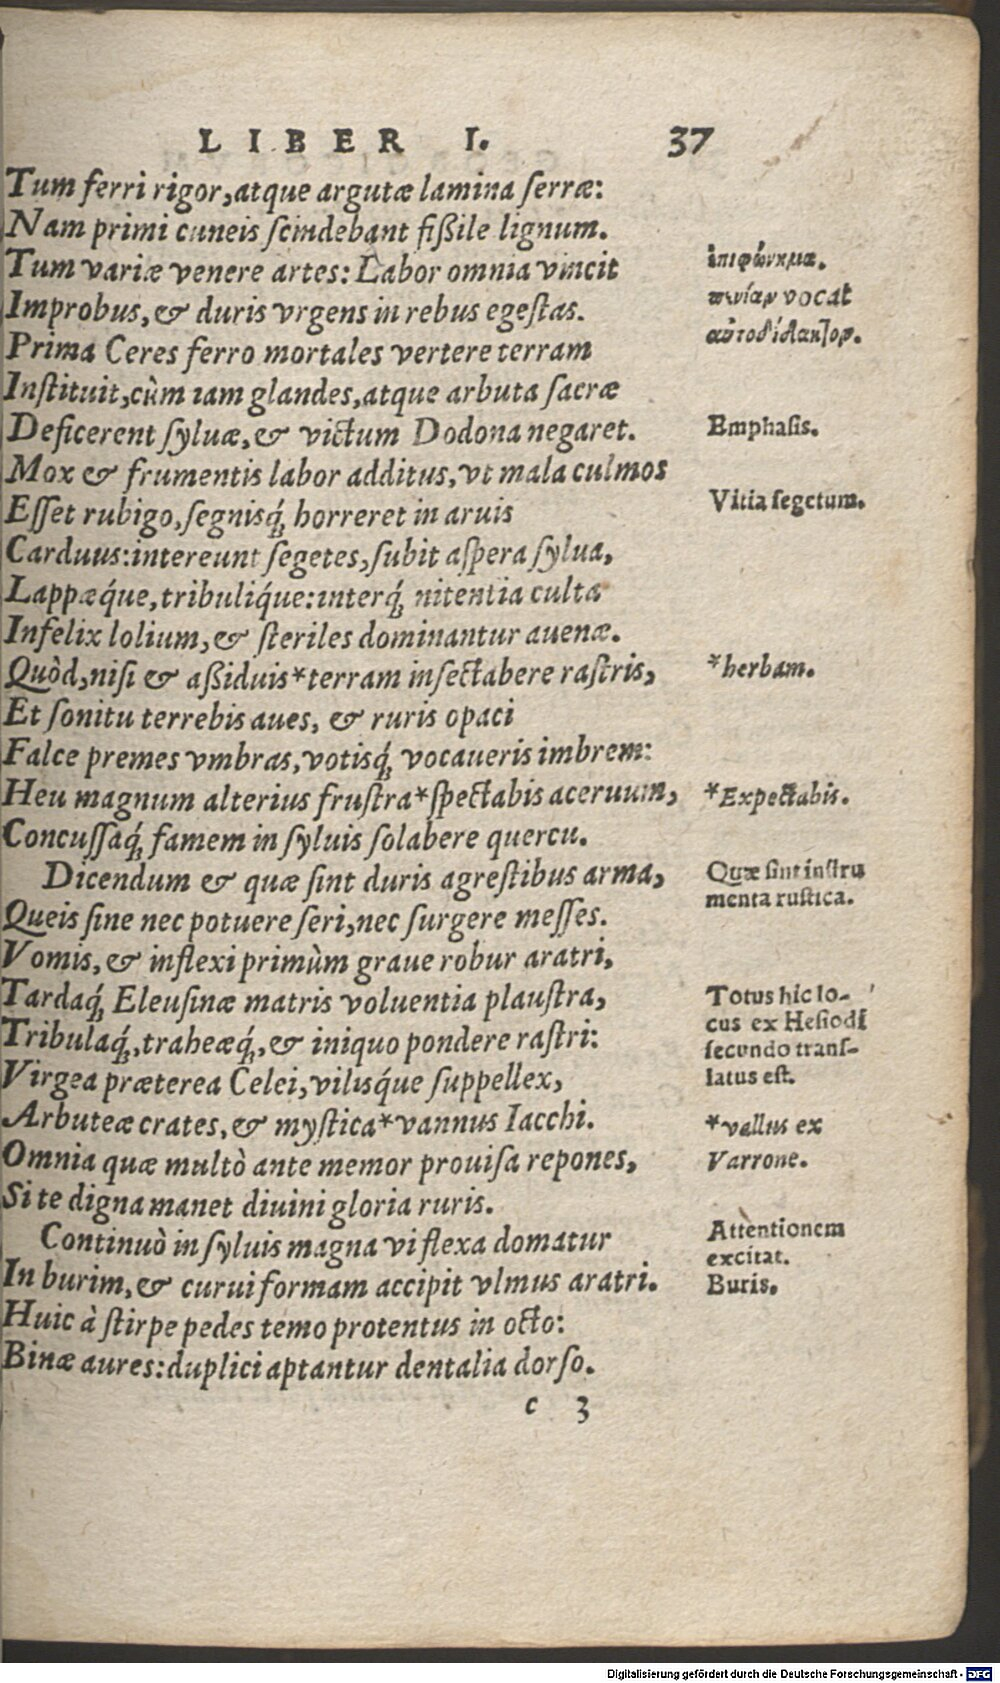 LIBER I. 37
Tum ferri rigor, atque argutæ lamina ſerræ:
Nam primi cuneis ſcindebant fißile lignum.
Tum variæ venere artes: Labor omnia vincit
Improbus, & duris vrgens in rebus egeſtas.
Prima Ceres ferro mortales vertere terram
Inſtituit, cùm iam glandes, atque arbuta ſacræ
Deficerent ſyluæ, & victum Dodona negaret.
Mox & frumentis labor additus, vt mala culmos
Eſſet rubigo, ſegnisq́; horreret in aruis
Carduus: intereunt ſegetes, ſubit aſpera ſylua,
Lappæq́ue, tribuliq́ue: interq́; nitentia culta
Infelix lolium, & ſteriles dominantur auenæ.
Quòd, niſi & aßiduis * terram inſectabere raſtris,
Et ſonitu terrebis aues, & ruris opaci
Falce premes vmbras, votisq́; vocaueris imbrem:
Heu magnum alterius fruſtra * ſpectabis aceruum,
Concuſſaq́; famem in ſyluis ſolabere quercu.
Dicendum & quæ ſint duris agreſtibus arma,
Queis ſine nec potuere ſeri, nec ſurgere meſſes.
Vomis, & inflexi primùm graue robur aratri,
Tardaq́; Eleuſinæ matris voluentia plauſtra,
Tribulaq́;, traheæq́;, & iniquo pondere raſtri:
Virgea præterea Celei, vilisq́ue ſuppellex,
Arbuteæ crates, & myſtica * vannus Iacchi.
Omnia quæ multò ante memor prouiſa repones,
Si te digna manet diuini gloria ruris.
Continuò in ſyluis magna vi flexa domatur
In burim, & curui formam accipit vlmus aratri.
Huic à ſtirpe pedes temo protentus in octo:
Binæ aures: duplici aptantur dentalia dorſo.
c 3
ἐπιφώνημα.
πενίαν vocat
αὐτοδίδακτον.
Emphaſis.
Vitia ſegetum.
* herbam.
* Expectabis.
Quæ ſint inſtru
menta ruſtica.
Totus hic lo-
cus ex Heſiodi
ſecundo tranſ-
latus eſt.
* vallus ex
Varrone.
Attentionem
excitat.
Buris.
Digitalisierung gefördert durch die Deutsche Forschungsgemeinschaft - DFG